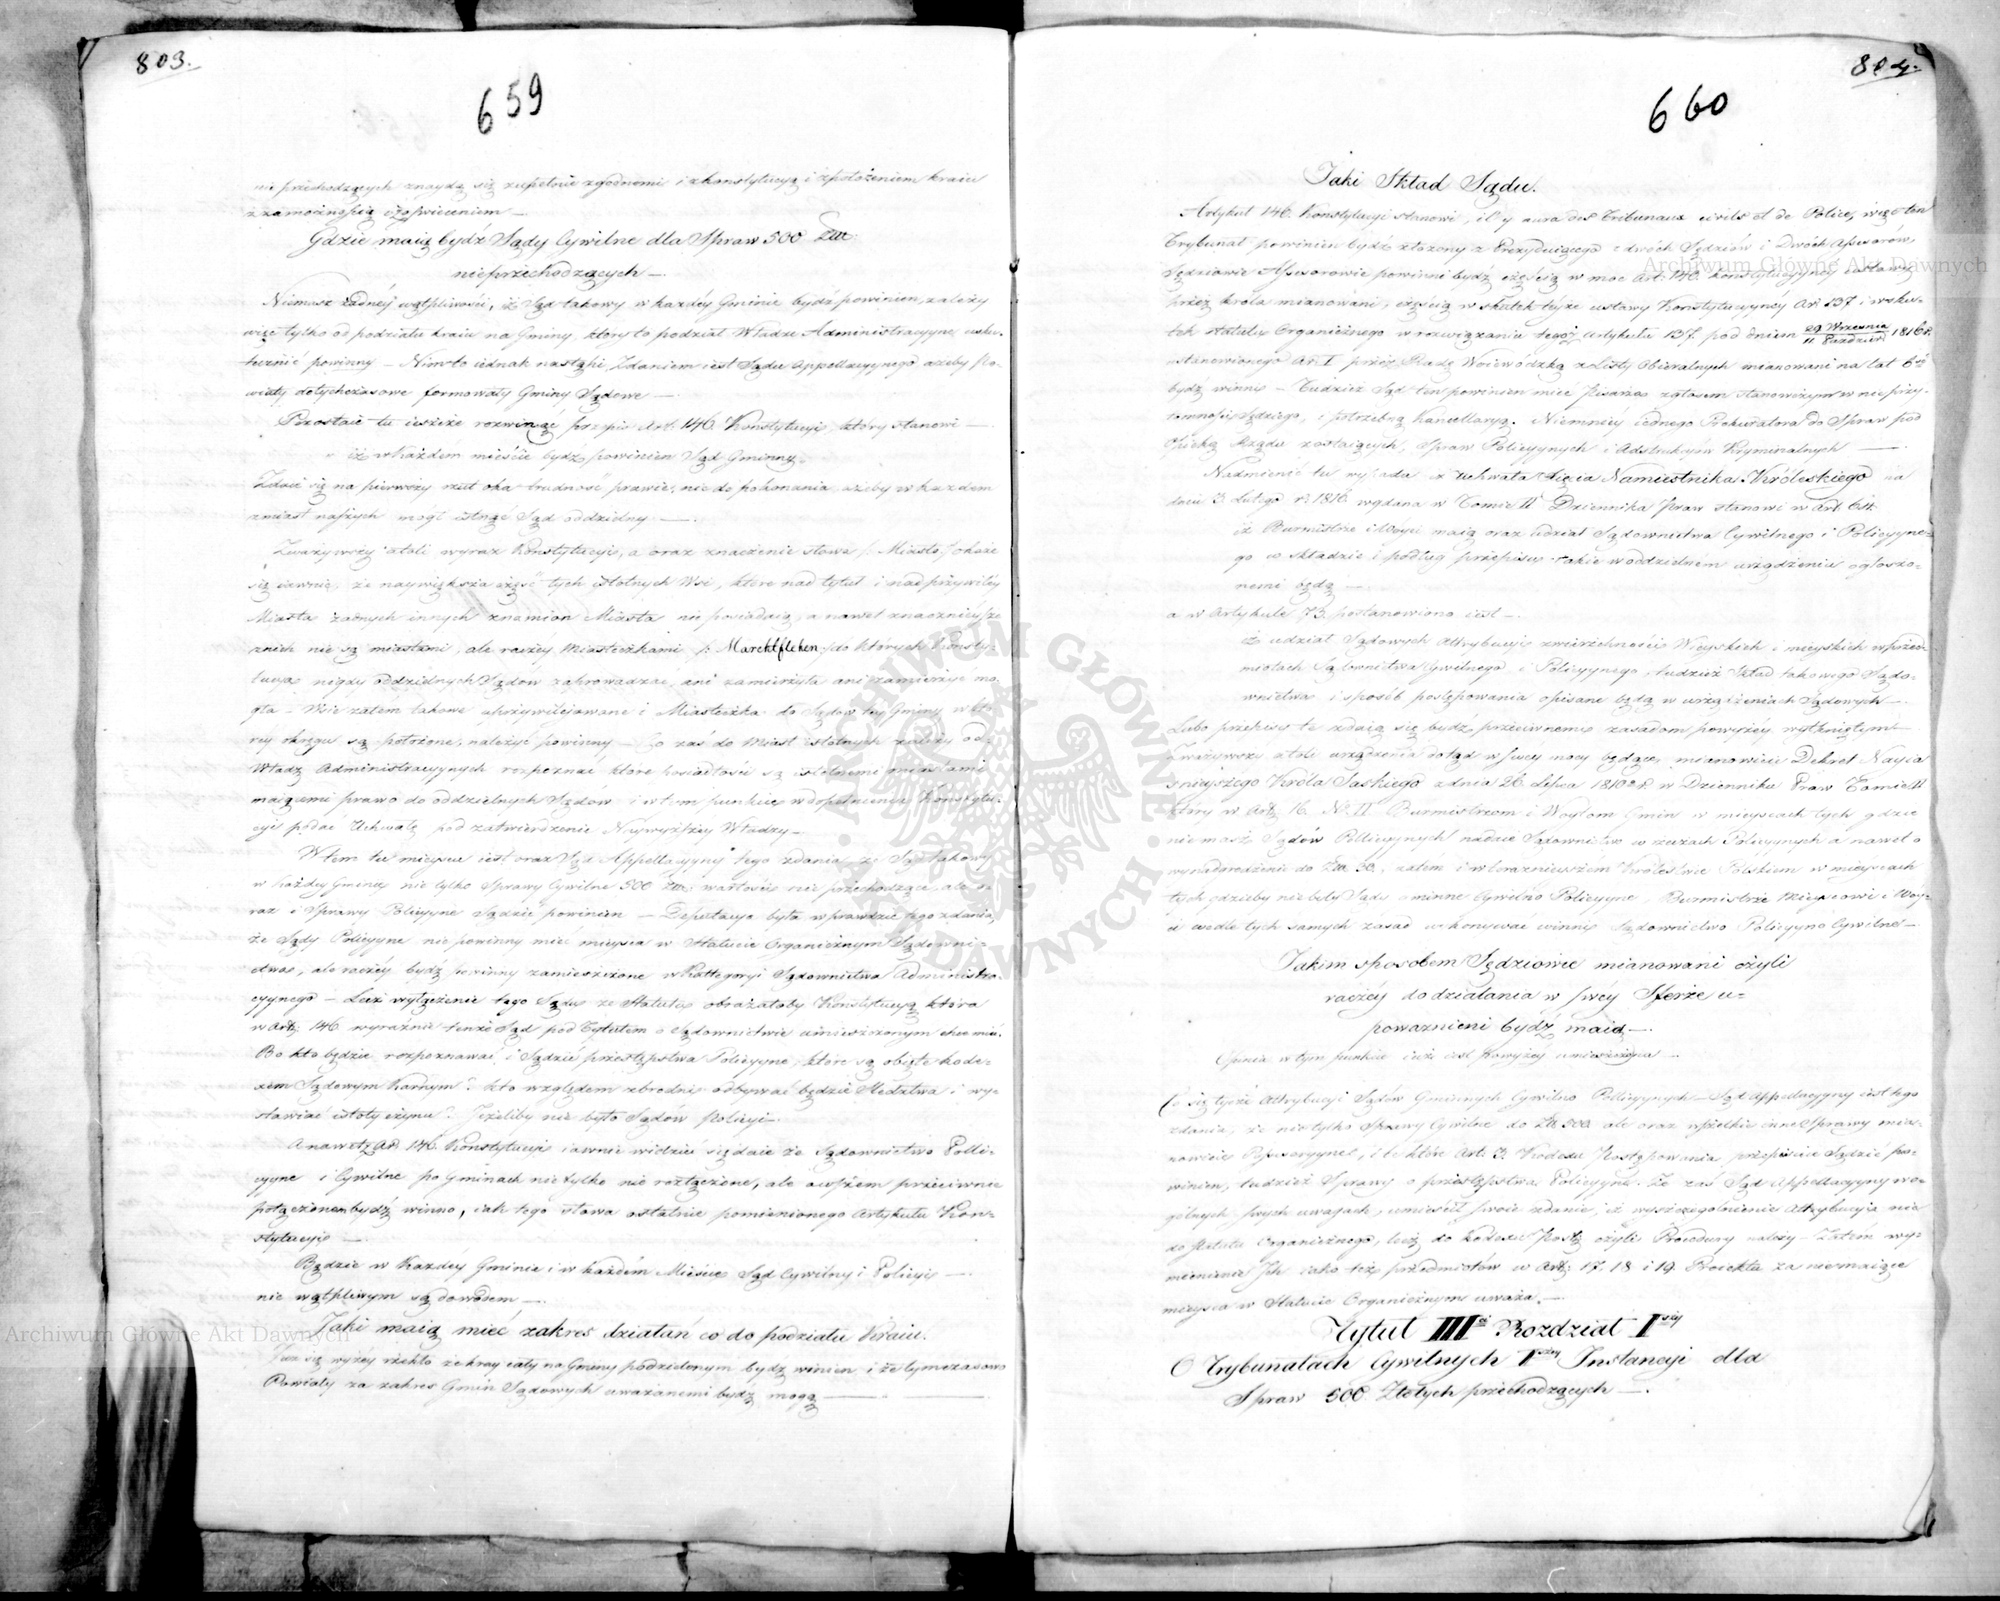 803.
659
nie przechodzących znaydą się zupełnie zgodnemi i z konstytucyą i z położeniem kraiu
z zamożnością i oświeceniem —
Gdzie maią bydź Sądy Cywilne dla Spraw 500 Złł:
nieprzechodzących —
Niemasz żadnéy wątpliwości, iż Sąd takowy w każdéy Gminie bydź powinien, zależy
więc tylko od podziału kraiu na Gminy, który to podział Władze Administracyyne usku-
tecznić powinny — Nim to iednak nastąpi, Zdaniem iest Sądu Appellacyynego ażeby Po-
wiaty dotychczasowe formowały Gminy Sądowe —
Pozostaie tu ieszcze rozwinąć przepis Art: 146 Konstytucyi, który stanowi —
iż w każdem mieście bydź powinien Sąd Gminny.
Zdaie się na pierwszy rzut oka trudność prawie nie do pokonania, ażeby w każdem
z miast naszych mógł istnąć Sąd oddzielny —
Zważywszy atoli wyraz Konstytucyi, a oraz znaczenie słowa /: Miasto :/ okaże
się iawnie, że naywiększa część tych istotnych Wsi, które nad tytuł i nad przywiléy
Miasta żadnych innych znamion Miasta nie posiadaią, a nawet znacznieysze
z nich nie są miastami, ale raczéy Miasteczkami /: Marcktflecken :/ do których Konsty-
tucya nigdy oddzielnych Sądów zaprowadzać ani zamierzyła ani zamierzyć mo-
gła — Wsie zatem takowe uprzywilejowane i Miasteczka do Sądów téy Gminy w któ-
réy okręgu są położone, należyć powinny — Co zaś do Miast istotnych zależy od
Władz Administracyynych rozpoznać które posiadłości są istotnemi miastami
maiącemi prawo do oddzielnych Sądów i w tem punkcie w dopełnieniu Konstytu-
cyi podać Uchwałę pod zatwierdzenie Naywyższéy Władzy —
W tem tu mieyscu iest oraz Sąd Appellacyyny tego zdania, że Sąd takowy
w każdéy Gminie nie tylko Sprawy Cywilne 500 Złł: wartości nie przechodzące, ale o-
raz i Sprawy Policyyne Sądzić powinien — Deputacya była wprawdzie tego zdania,
że Sądy Policyyne nie powinny mieć mieysca w Statucie Organicznym Sądowni-
ctwa, ale raczéy bydź powinny zamieszczone w Kattegoryi Sądownictwa Administra-
cyynego — Lecz wyłączenie tego Sądu ze Statutu obrażałoby Konstytucyą, która
w Art: 146 wyraźnie tenże Sąd pod Tytułem o Sądownictwie umieszczonym chce mieć.
Bo kto będzie rozpoznawać i Sądzić przestępstwa Policyyne, które są obięte kode-
xem Sądowym Karnym? kto względem zbrodni odbywać będzie Śledztwa i wy-
stawiać istoty czynu? Jeżeliby nie było Sądów Policyi —
A nawet z Art: 146 Konstytucyi iawnie widzieć się daie że Sądownictwo Polli-
cyyne i Cywilne po Gminach nie tylko nie rozłączone, ale owszem przeciwnie
połączonem bydź winno, iak tego słowa ostatnie pomienionego Artykułu Kon-
stytucyi —
Będzie w Każdéy Gminie i w każdem Mieście Sąd Cywilny i Policyi —
nie wątpliwym są dowodem —
Jaki maią mieć zakres działań co do podziału Kraiu.
Już się wyżéy rzekło że kray cały na Gminy podzielonym bydź winien i że tymczasowo
Powiaty za zakres Gmin Sądowych uważanemi bydź mogą —
804.
660
Jaki Skład Sądu.
Artykuł 146. Konstytucyi stanowi, il y aura des Tribunaux civils et de Police, więc ten
Trybunał powinien bydź złożony z Prezyduiącego z dwóch Sędziów i Dwóch Assesorów,
Sędziowie Assesorowie powinni bydź częścią w moc Art: 146. konstytucyynéy ustawy
przez króla mianowani, częścią w skutek téyże ustawy Konstytucyynéy Art 137 i w sku-
tek statutu Organicznego w rozwiązaniu tegoż Artykułu 137. pod dniem 29 Września / 11 Paździer: 1816 r.
ustanowionego Art. I przez Radę Woiewódzką z listy obieralnych mianowani na lat 6ść
bydź winni — Tudzież Sąd ten powinien mieć Pisarza z głosem stanowczym w nieprzy-
tomności Sędziego, i potrzebną kancellaryą. Niemniéy iednego Prokuratora do Spraw pod
Opieką Rządu zostaiących, Spraw Policyynych i Adstrukcyów Kryminalnych —
Nadmienić tu wypada iż Uchwała Xięcia Namiestnika Króleskiego na
dniu 3. Lutego r: 1816 wydana w Tomie II Dziennika Praw stanowi w Art: 64.
iż Burmistrze i Woyci maią oraz udział Sądownictwa Cywilnego i Policyyne-
go w składzie i podług przepisu iakie w oddzielnem urządzeniu ogłoszo-
nemi będą —
a w Artykule 73. postanowiono iest —
iż udział Sądowych Attrybucyi zwierzchności Wieyskich i mieyskich w przed-
miotach Sądownictwa Cywilnego i Policyynego, tudzież Skład takowego Sądo-
wnictwa i sposób postępowania opisane będą w urządzeniach Sądowych —
Lubo przepisy te zdaią się bydź przeciwnemi zasadom powyżéy wytkniętym
Zważywszy atoli urządzenia dotąd w swéy mocy będące, mianowicie Dekret Nayia-
śnieyszego Króla Saskiego z dnia 26 Lipca 1810 r. w Dzienniku Praw Tomie II
który w Art: 16. No. II. Burmistrzom i Woytom Gmin w mieyscach tych gdzie
niemasz Sądów Pollicyynych nadaie Sądownictwo w rzeczach Policyynych a nawet o
wynadgrodzenie do Złł. 50., zatem i w teraznieyszem Królestwie Polskiem w mieyscach
tych gdzieby nie były Sądy Gminne Cywilno Policyyne, Burmistrze Mieyscowi i Woy-
ci wedle tych samych zasad wykonywać winni Sądownictwo Policyyno Cywilne —
Jakim sposobem Sędziowie mianowani czyli
raczéy do działania w swéy Sferze u-
poważnieni bydź maią —
Opinia w tym punkcie iuż iest powyżéy umieszczona —
Co się tycze Attrybucyi Sądów Gminnych Cywilno Policyynych — Sąd Appellacyyny iest tego
zdania, że nie tylko Sprawy Cywilne do Złł 500 ale oraz wszelkie inne Sprawy mia-
nowicie Possessoryyne, i te które Art: 3. Kodexu Postępowania przepisuie Sądzić po-
winien, tudzież Sprawy o przestępstwa Policyyne. Że zaś Sąd Appellacyyny w o-
gólnych swych uwagach, umieścił swoie zdanie, iż wyszczególnienie Attrybucyi nie
do Statutu Organicznego, lecz do kodexu Postę: czyli Procedury należy — Zatém wy-
mienienie Ich iako też przedmiotów w Art: 17. 18 i 19 Proiektu za niemaiące
mieysca w Statucie Organicznym uważa. —
Tytuł III.ci Rozdział I.szy
O Trybunałach Cywilnych I.széy Instancyi dla
Spraw 500 Złotych przechodzących —.
Archiwum Główne Akt Dawnych
Archiwum Główne Akt Dawnych
· ARCHIWUM GŁÓWNE · AKT DAWNYCH ·